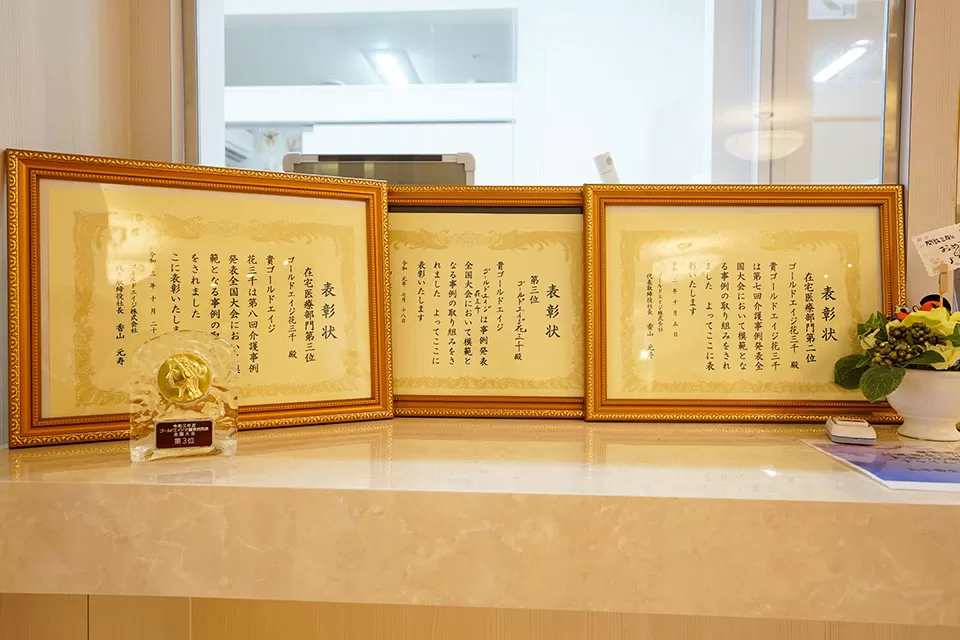 表彰状
在宅医療部門第三位
ゴールドエイジ花三千 殿
貴ゴールドエイジ
花三千は第八回介護事例
発表全国大会において模
範となる事例の
をされました
こに表彰いたしま
令和三年十月二十
ゴールドエイジ株式会社
代表取締役社長 香山 元寿
第3位
表彰状
第三位
ゴールドエイジ花三千殿
貴ゴールドエイジ
は事例発表
全国大会において模範と
なる事例の取り組みをさ
れました よってここに
表彰いたします
令和元年 月十八日
表彰状
在宅医療部門第二位
ゴールドエイジ花三千 殿
貴ゴールドエイジ花三千
は第七回介護事例発表全
国大会において模範とな
る事例の取り組みをされ
ました よってここに表
彰いたします
令和二年十月五日
ゴールドエイジ株式会社
代表取締役社長 香山 元寿